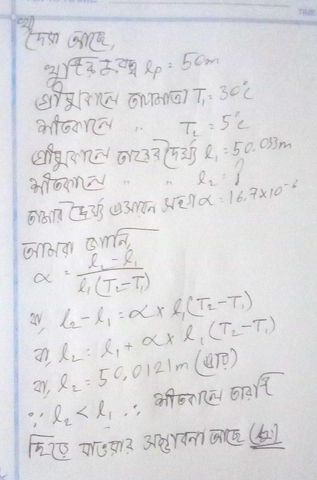 দেয়া আছে,
খুটির দূরত্ব lp = 50m
গ্রীষ্মকালে তাপমাত্রা T₁ = 30°c
শীতকালে " T₂ = 5°c
গ্রীষ্মকালে তারের দৈর্ঘ্য l₁ = 50.033m
শীতকালে " " l₂ = ?
তামার দৈর্ঘ্য প্রসারন সহগ α = 16.7×10⁻⁶
আমরা জানি,
α = (l₂ - l₁) / (l₁(T₂-T₁))
বা, l₂ - l₁ = α × l₁(T₂-T₁)
বা, l₂ = l₁ + α × l₁(T₂-T₁)
বা, l₂ = 50.0121m (প্রায়)
∵ l₂ < l₁ ∴ শীতকালে তারটি
ছিড়ে যাওয়ার সম্ভাবনা আছে